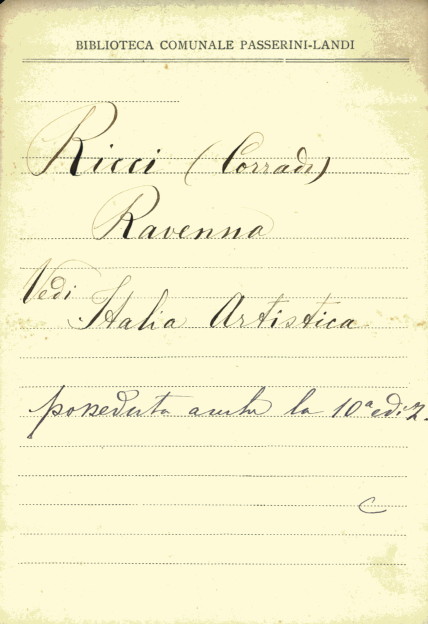 BIBLIOTECA COMUNALE PASSERINI-LANDI
Ricci (Corrado)
Ravenna
Vedi
Italia Artistica
posseduta anche la 10ª ediz.
C